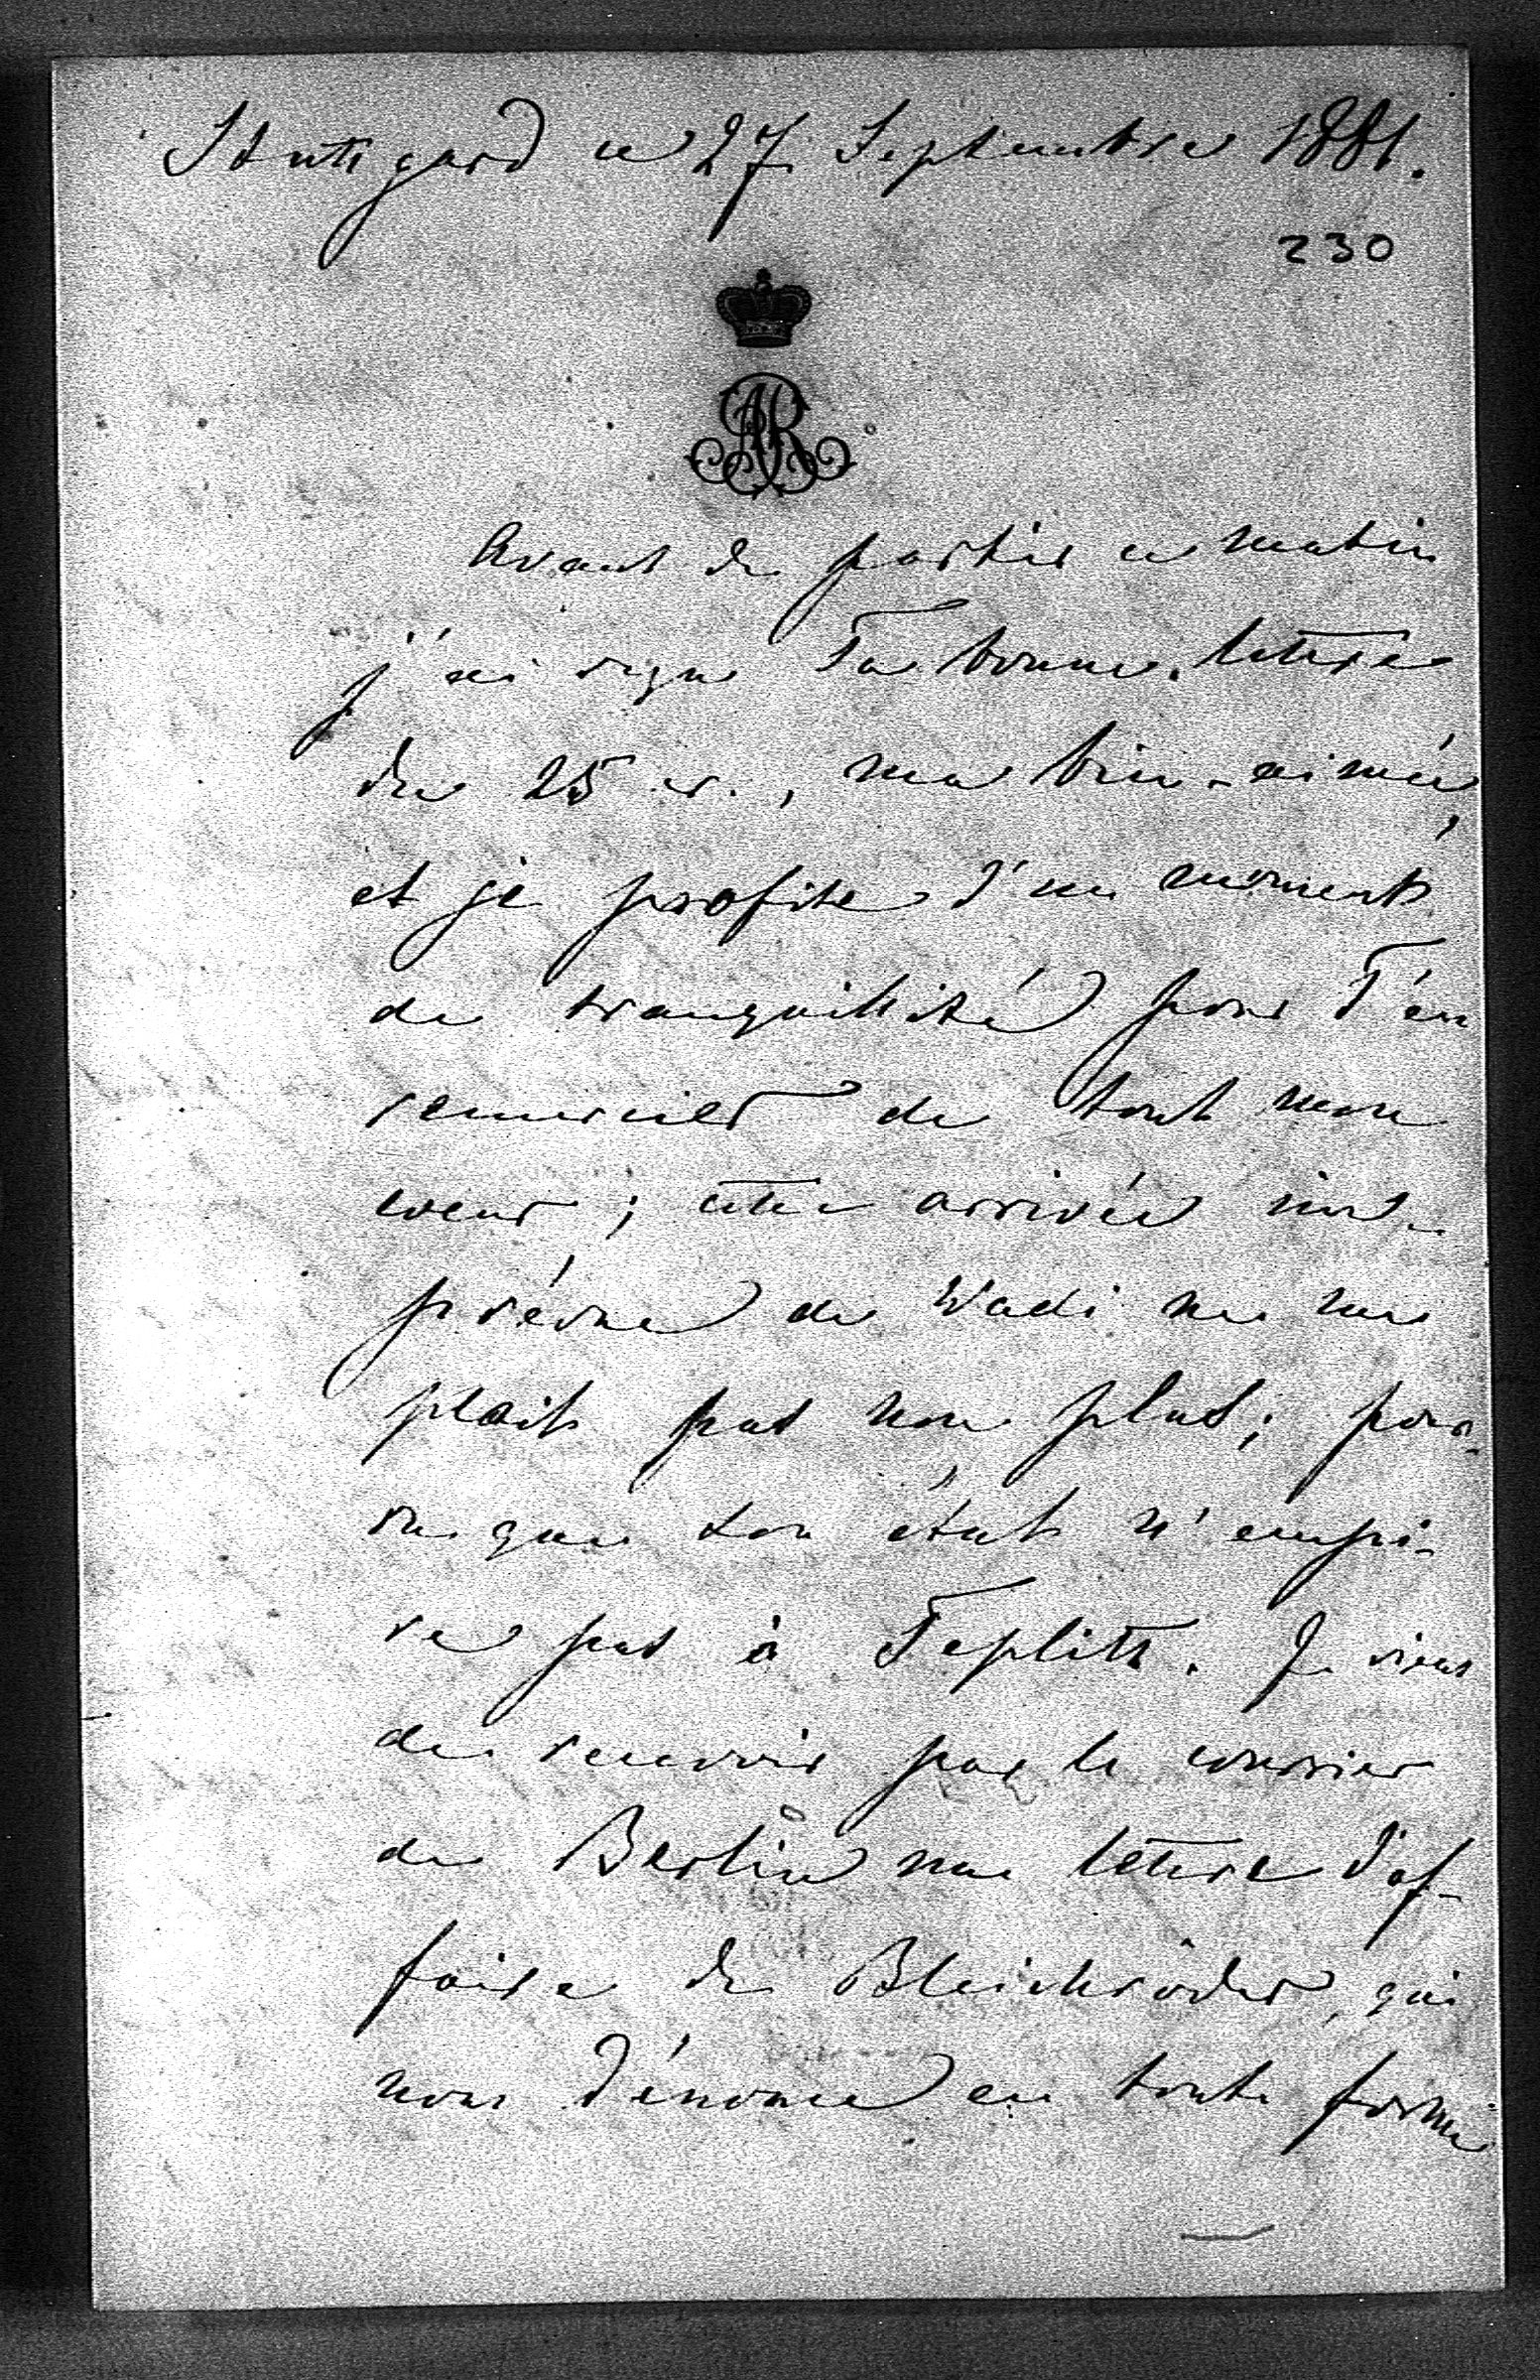 Stuttgard ce 27 Septembre 1881.
230
AR
Avant de partir ce matin
j'ai reçu Ta bonne lettre
du 25 c., ma bien-aimée,
et je profite d'un moment
de tranquillité pour T'en
remercier de tout mon
coeur; cette arrivée im-
prévue de Wadi ne me
plait pas non plus; pour-
vu que son état n'empi-
re pas à Teplitz. Je viens
de recevoir par le courrier
de Berlin une lettre d'af-
faire de Bleichröder, qui
nous dénonce en toute forme